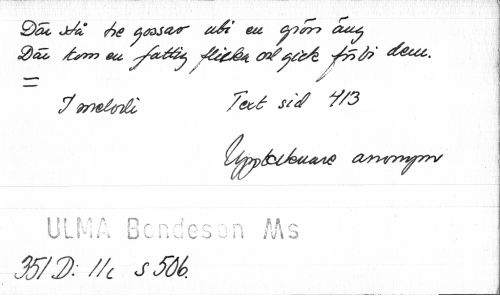 Där stå tre gossar uti en grön äng
Där kom en fattig flicka och gick förbi dem.
=
1 melodi Text sid 413
Upptecknare anonym
ULMA Bondeson Ms
351 D: 11c s 506.